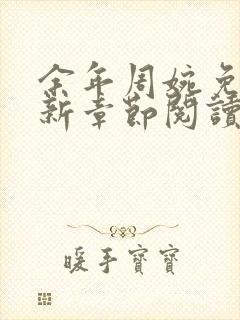 余年周婉免
新章節閱讀
暖手寶寶